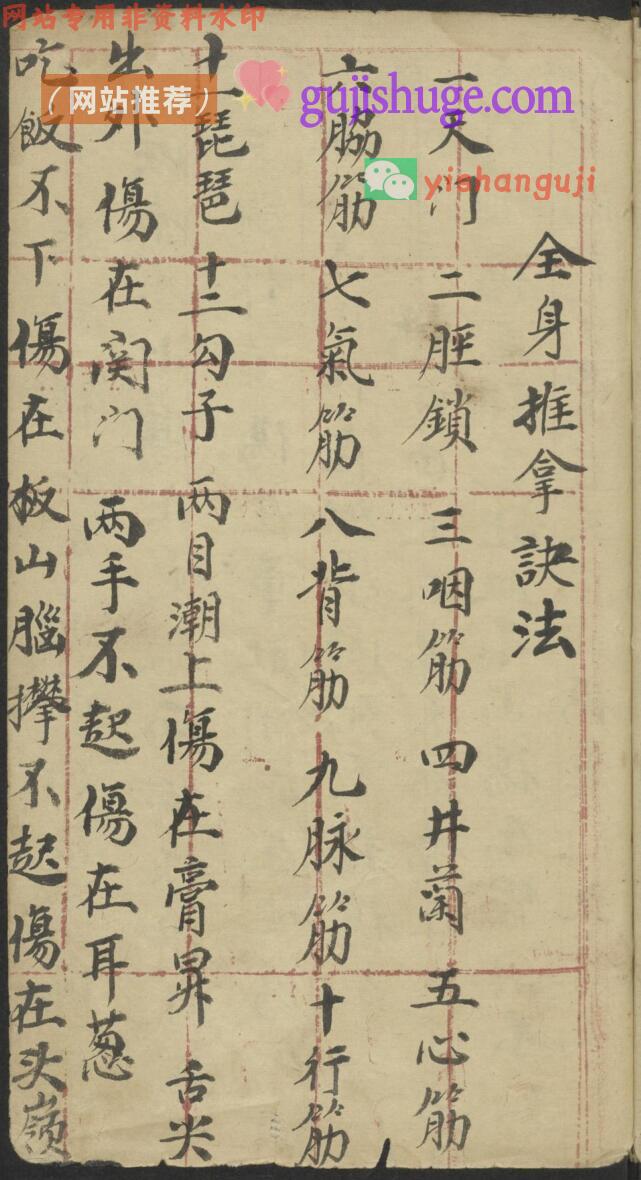 网站专用非资料水印
（网站推荐）
gujishuge.com
yishanguji
全身推拿訣法
一天门 二脛鎖 三咽筋 四井蘭 五心筋
六脇筋 七氣筋 八背筋 九脉筋 十行筋
十一琵琶 十二勾子 两目潮上傷在膏 舌尖
出外 傷在関门 两手不起傷在耳蔥
吃飯不下傷在板山腦攆不起傷在头嶺